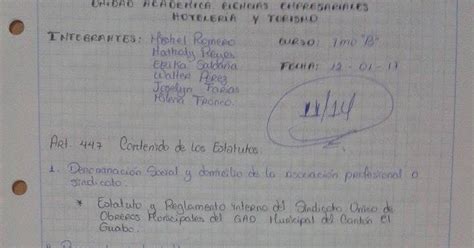 UNIDAD ACADÉMICA CIENCIAS EMPRESARIALES
HOTELERÍA Y TURISMO
INTEGRANTES: Mishel Romero
CURSO: 1mo "B"
Nathaly Reyes
Erika Saldaña
FECHA: 12-01-17
Walter Pérez
Joselyn Farias
Milena Tronco.
11/14
Art. 447 Contenido de los Estatutos.
1. Denominación Social y domicilio de la asociación profesional o
sindicato.
* Estatuto y Reglamento interno del Sindicato Único de
Obreros Municipales del GAD Municipal del Cantón El
Guabo.